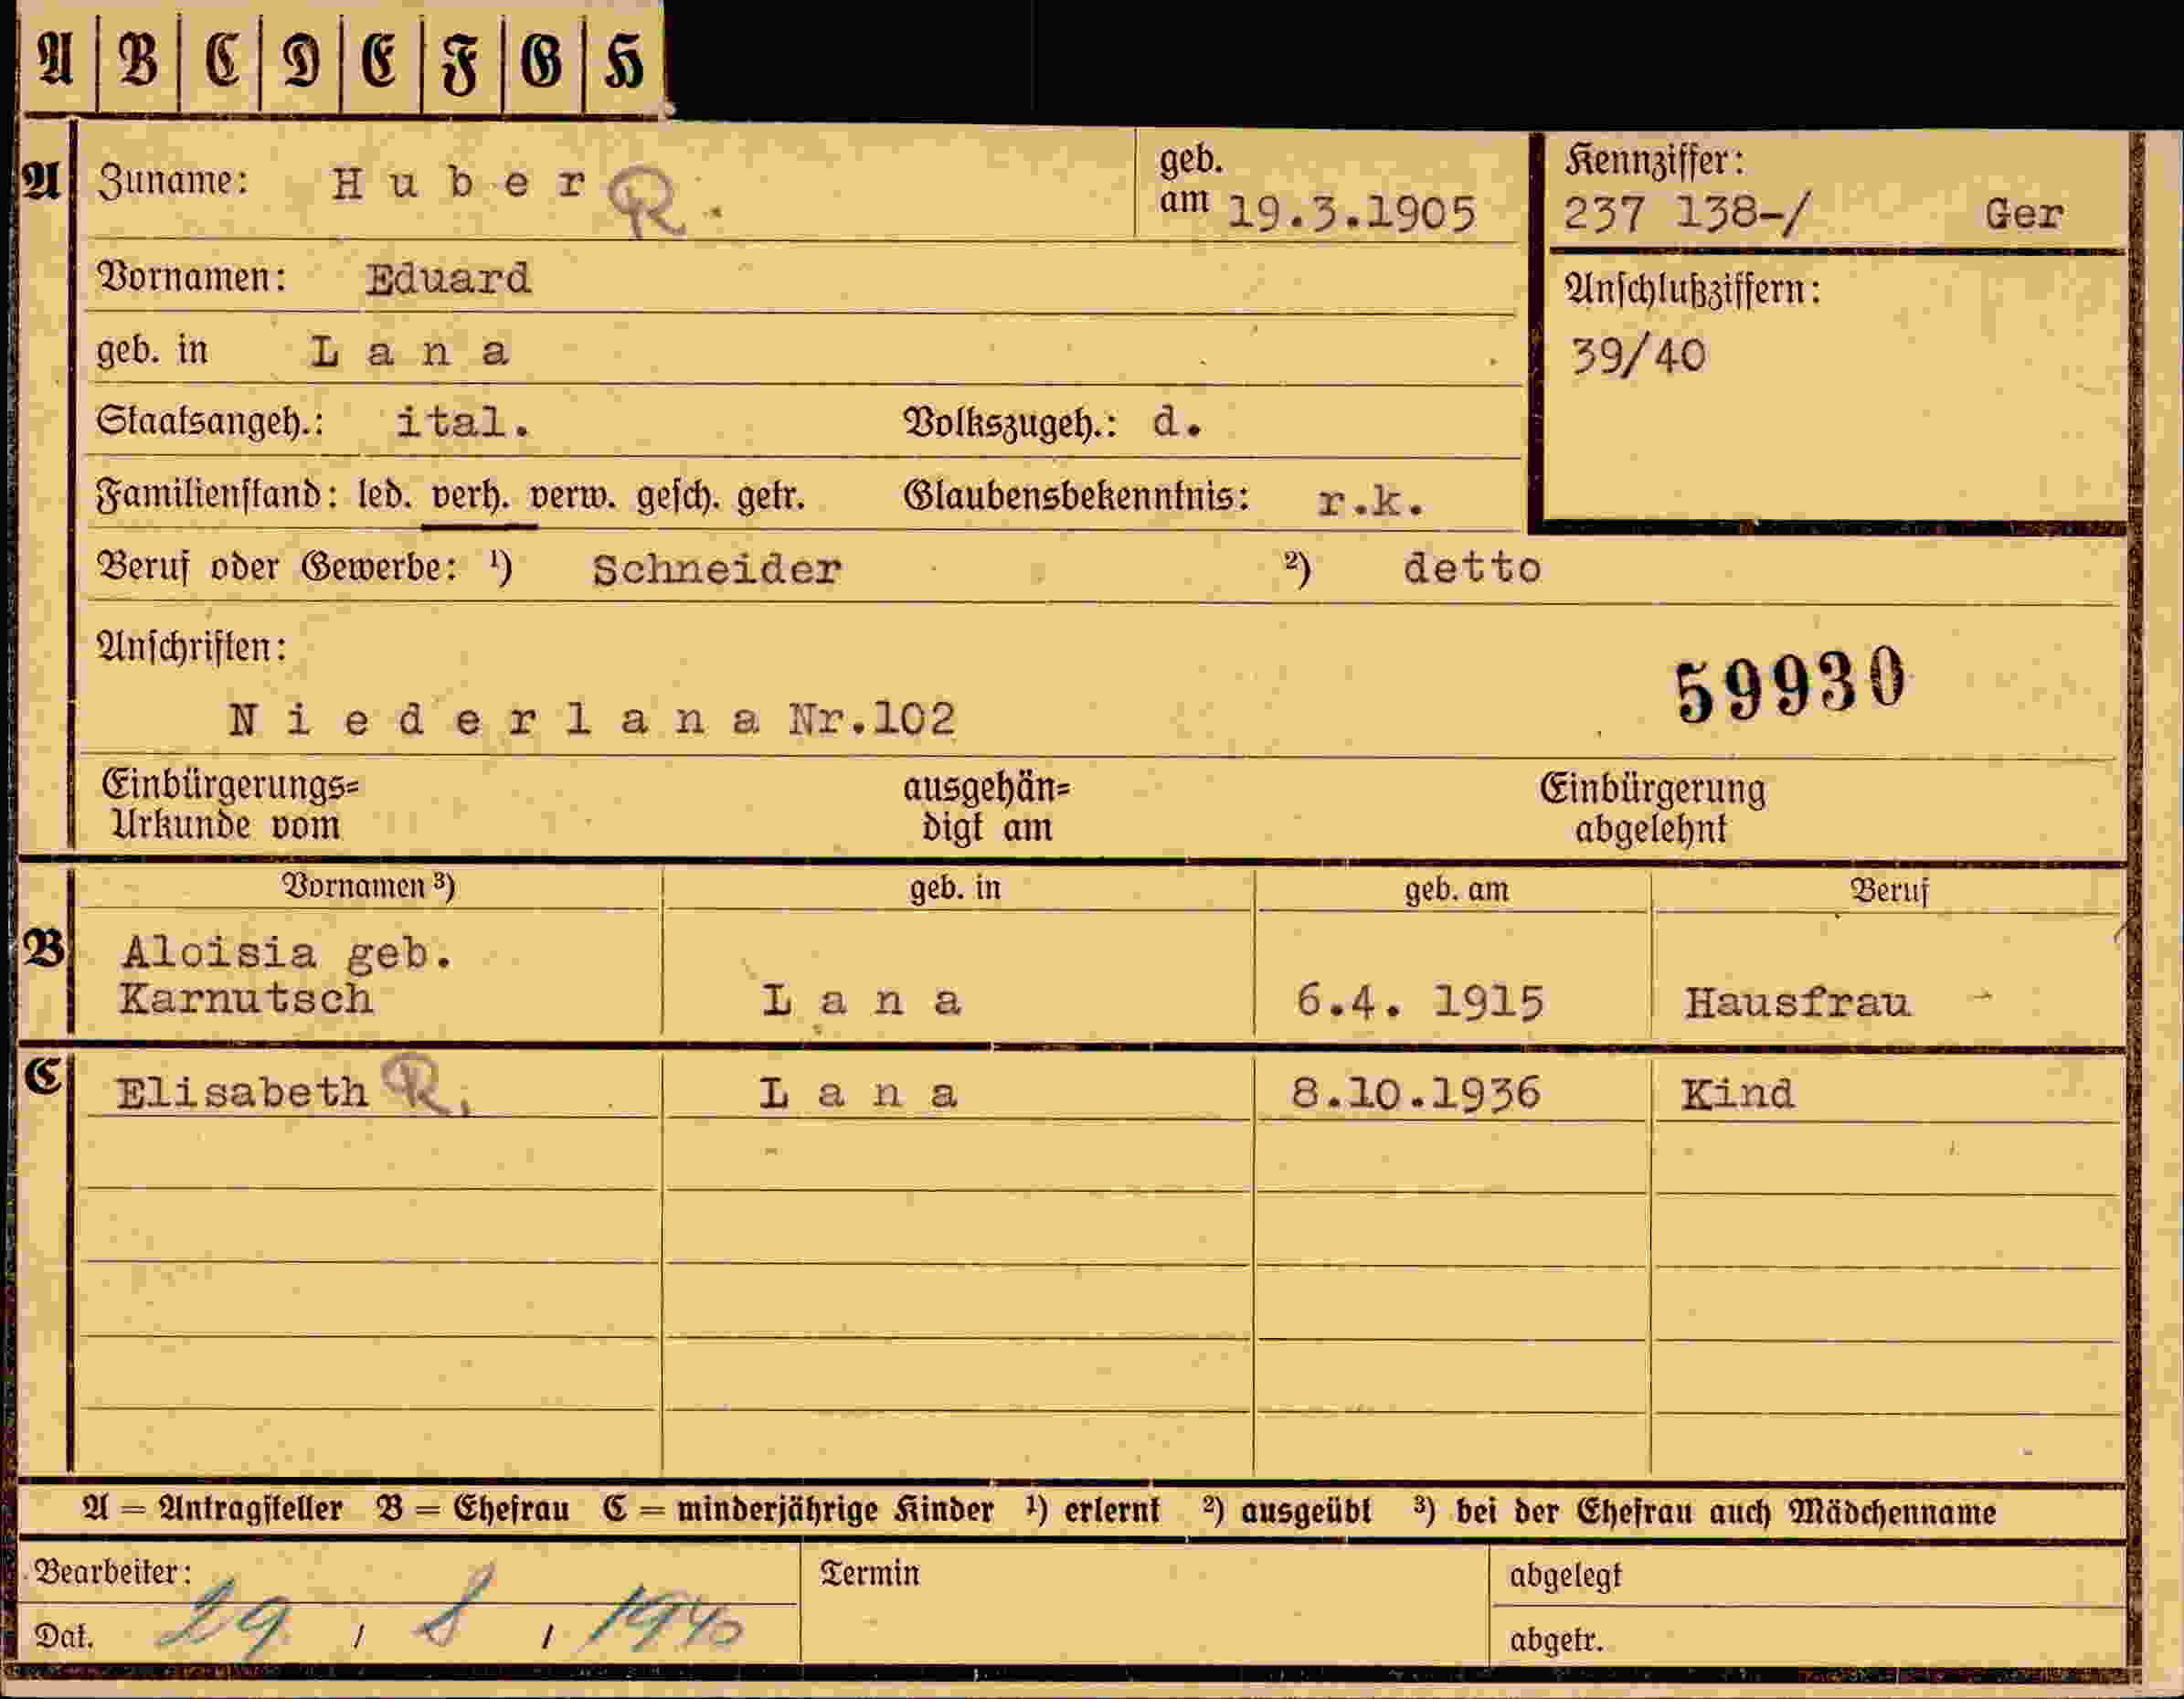 A B C D E F G H
A Zuname: Huber R. geb. am 19.3.1905
Kennziffer:
237 138-/ Ger
Vornamen: Eduard
Anschlußziffern:
39/40
geb. in Lana
Staatsangeh.: ital. Volkszugeh.: d.
Familienstand: led. verh. verw. gesch. getr. Glaubensbekenntnis: r.k.
Beruf oder Gewerbe: ¹) Schneider ²) detto
Anschriften:
59930
Niederlana Nr.102
Einbürgerungs= ausgehän= Einbürgerung
Urkunde vom digt am abgelehnt
Vornamen ³) geb. in geb. am Beruf
B Aloisia geb.
Karnutsch Lana 6.4. 1915 Hausfrau
C Elisabeth R. Lana 8.10.1936 Kind
A = Antragsteller B = Ehefrau C = minderjährige Kinder ¹) erlernt ²) ausgeübt ³) bei der Ehefrau auch Mädchenname
Bearbeiter: Termin abgelegt
Dat. 29 / 8 / 1940 abgetr.